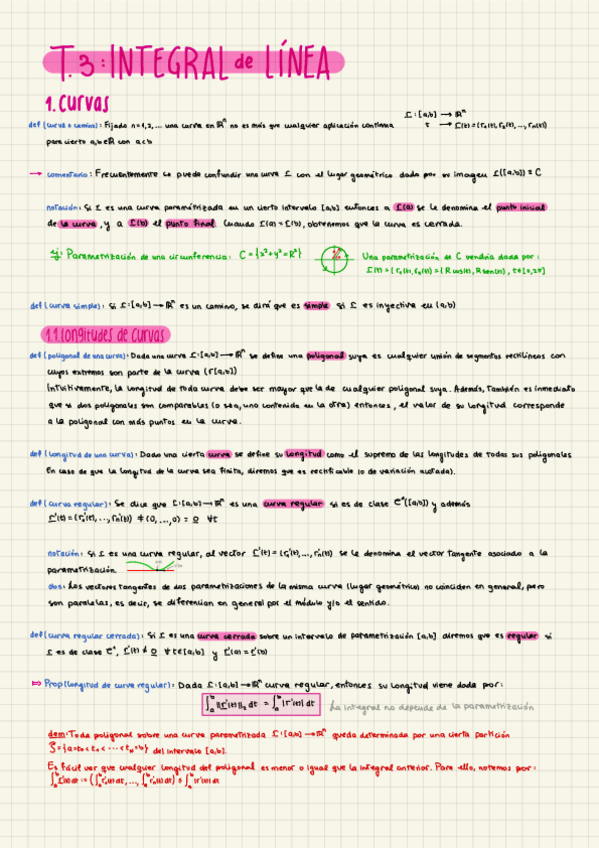 T.3: INTEGRAL de LÍNEA
1. Curvas
r: [a,b] → ℝⁿ
def (curva o camino): Fijado n=1,2,... una curva en ℝⁿ no es más que cualquier aplicación continua t → r(t) = (r₁(t), r₂(t), ..., rₙ(t))
para cierto a,b∈ℝ con a<b
→ comentario: Frecuentemente se puede confundir una curva r con el lugar geométrico dado por su imagen r([a,b]) = C
notación: Si r es una curva parametrizada en un cierto intervalo [a,b] entonces a r(a) se le denomina el punto inicial
de la curva, y a r(b) el punto final. Cuando r(a) = r(b), obtenemos que la curva es cerrada.
ej: Parametrización de una circunferencia: C = {x²+y² = R²} Una parametrización de C vendría dada por:
r(t) = (r₁(t), r₂(t)) = (R cos(t), R sen(t)), t∈[0,2π]
def (curva simple): Si r: [a,b] → ℝⁿ es un camino, se dirá que es simple si r es inyectiva en (a,b)
1.1. Longitudes de curvas
def (poligonal de una curva): Dada una curva r: [a,b] → ℝⁿ se define una poligonal suya es cualquier unión de segmentos rectilíneos con
cuyos extremos son parte de la curva (r[a,b])
Intuitivamente, la longitud de toda curva debe ser mayor que la de cualquier poligonal suya. Además, también es inmediato
que si dos poligonales son comparables (o sea, uno contenido en la otra) entonces, el valor de su longitud corresponde
a la poligonal con más puntos en la curva.
def (longitud de una curva): Dado una cierta curva se define su longitud como el supremo de las longitudes de todas sus poligonales
En caso de que la longitud de la curva sea finita, diremos que es rectificable (o de variación acotada).
def (curva regular): Se dice que r: [a,b] → ℝⁿ es una curva regular si es de clase C¹([a,b]) y además
r'(t) = (r₁'(t), ..., rₙ'(t)) ≠ (0, ..., 0) = 0 ∀t
notación: Si r es una curva regular, al vector r'(t) = (r₁'(t), ..., rₙ'(t)) se le denomina el vector tangente asociado a la
parametrización.
obs: Los vectores tangentes de dos parametrizaciones de la misma curva (lugar geométrico) no coinciden en general, pero
son paralelas, es decir, se diferencian en general por el módulo y/o el sentido.
def (curva regular cerrada): Si r es una curva cerrada sobre un intervalo de parametrización [a,b] diremos que es regular si
r es de clase C¹, r'(t) ≠ 0 ∀t∈[a,b] y r'(a) = r'(b)
⇒ Prop (longitud de curva regular): Dada r: [a,b] → ℝⁿ curva regular, entonces su longitud viene dada por:
∫ₐᵇ ||r'(t)||₂ dt = ∫ₐᵇ |r'(t)| dt La integral no depende de la parametrización
dem: Toda poligonal sobre una curva parametrizada r: [a,b] → ℝⁿ queda determinada por una cierta partición
= {a=t₀<t₁<···<t_N=b} del intervalo [a,b].
Es fácil ver que cualquier longitud del poligonal es menor o igual que la integral anterior. Para ello, notemos por: